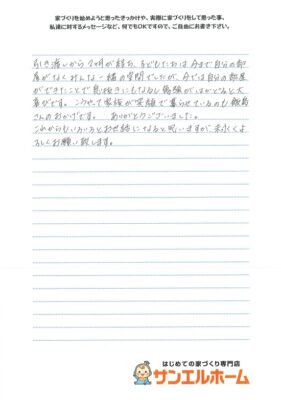 家づくりを始めようと思ったきっかけや、実際に家づくりをして思った事、
私達に対するメッセージなど、何でもOKですので、ご自由にお書き下さい。
引き渡しから2ヶ月が経ち、子どもたちは今まで自分の部
屋がなくみんな一緒の空間でしたが、今では自分の部屋
ができたことで息抜きにもなるし勉強がはかどると大
喜びです。こうやって家族が笑顔で暮らせているのも飯島
さんのおかげです。ありがとうございました。
これからもいろいろとお世話になると思いますが、末永くよ
ろしくお願い致します。
はじめての家づくり専門店
サンエルホーム